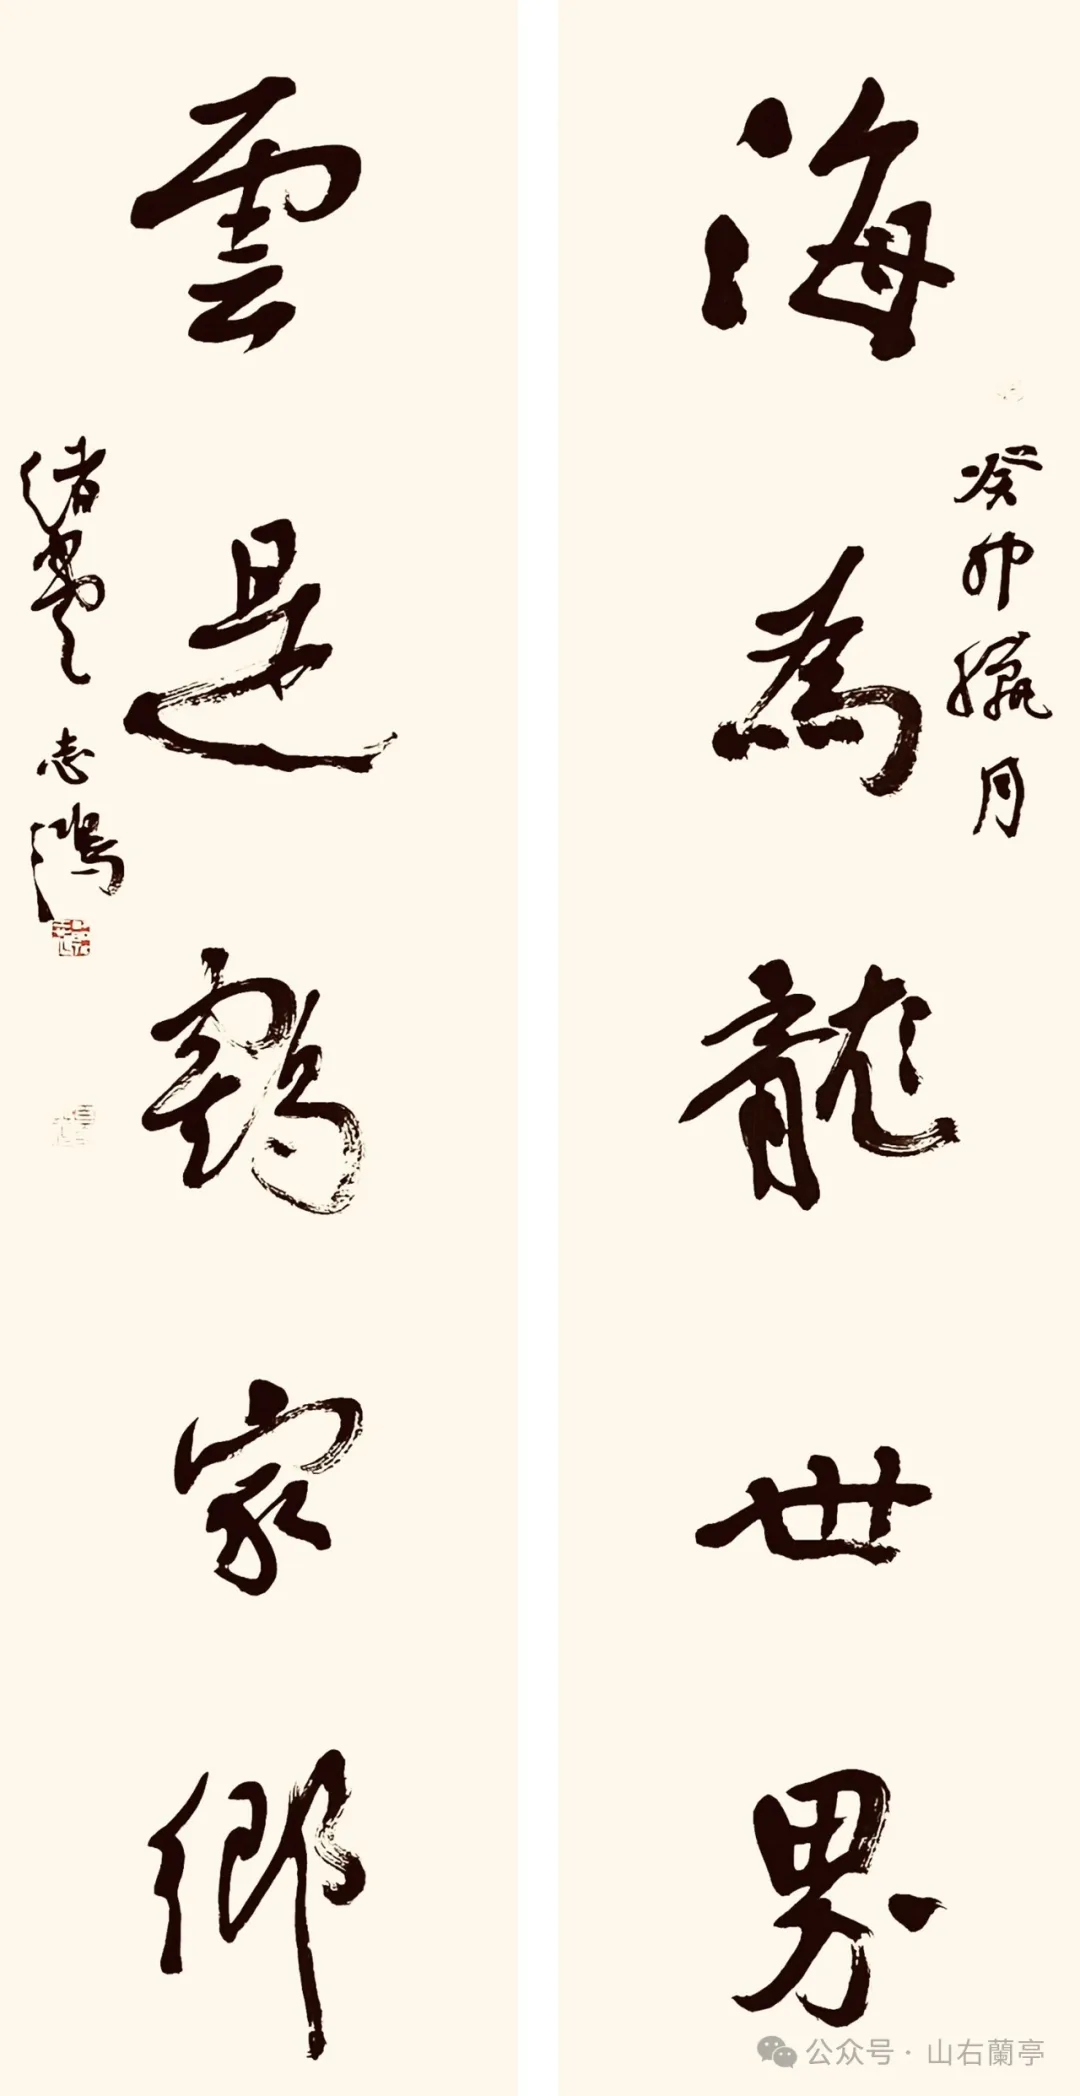 海為龍世界
癸卯臘月
雲是鶴家鄉
緒雲志鴻
公众号·山右蘭亭